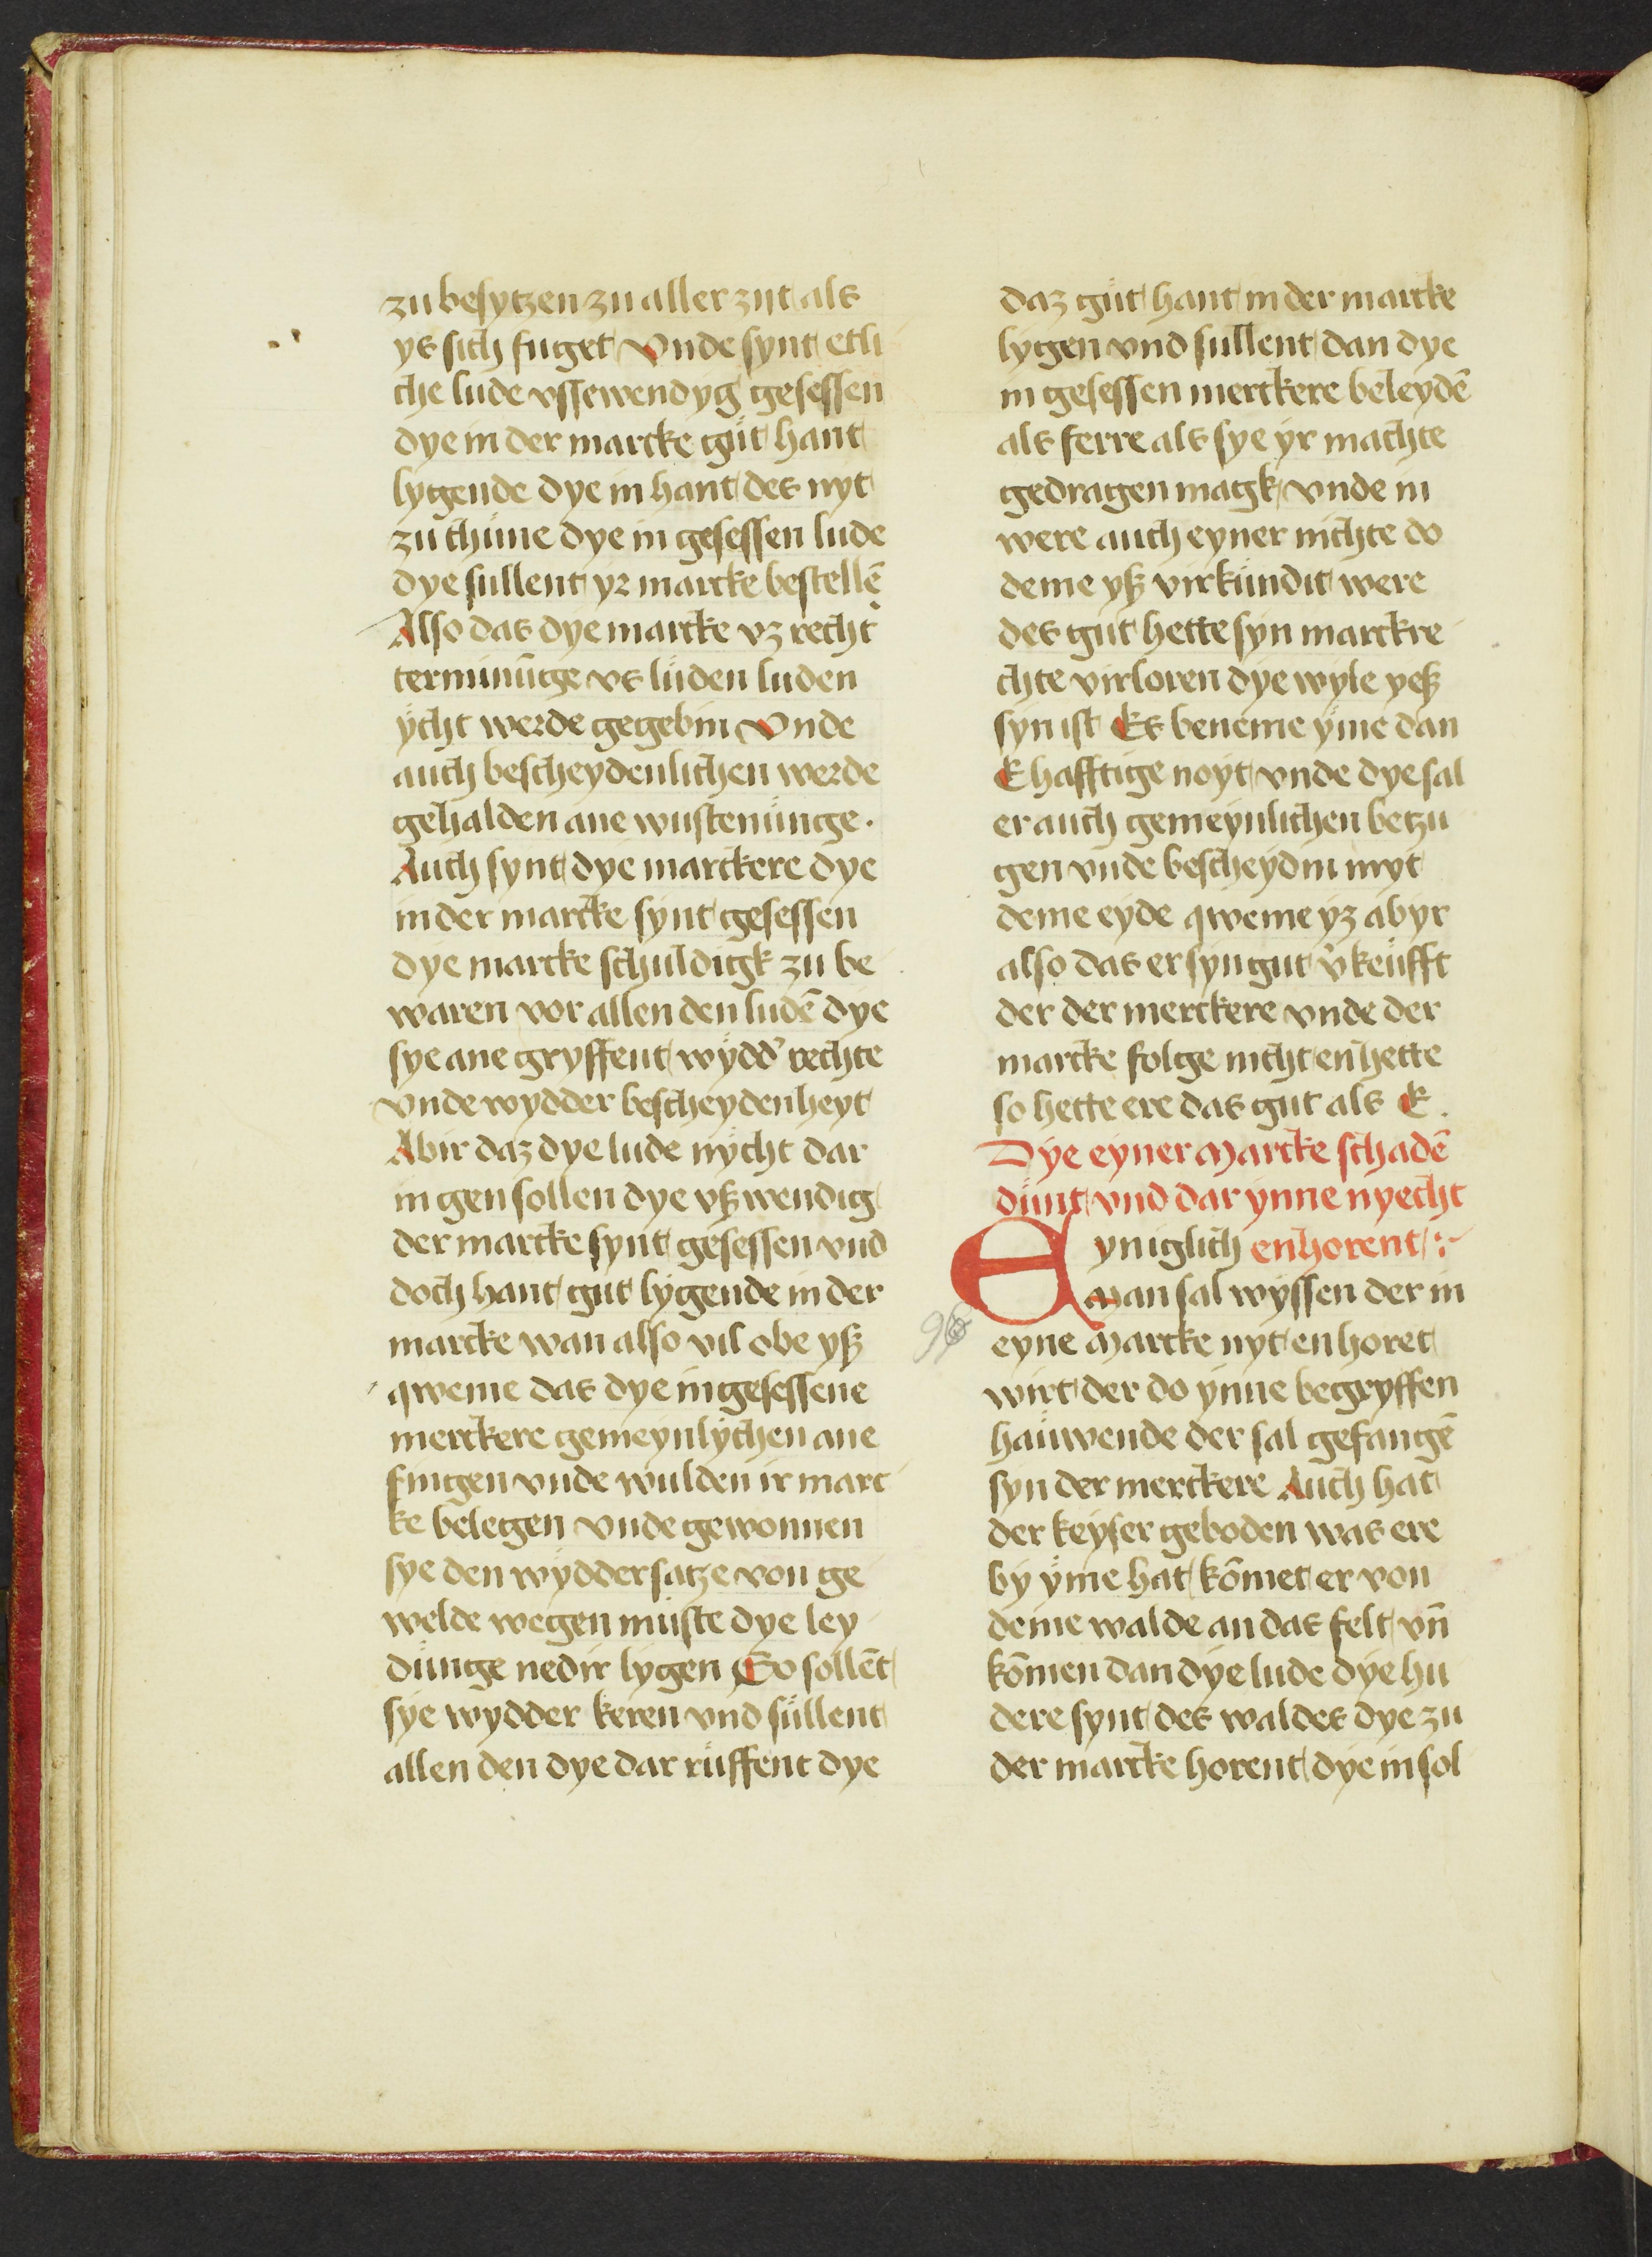 zu besytzen zu aller zyt als
ys sich fuget Vnde synt etli
che lude vssewendyg gesessen
dye in der marcke gut hant
lygende dye in hant des nyt
zu thune dye in gesessen lude
dye sullent yr marcke bestellē
Also das dye marcke vz recht
terminūge vs luden luden
ycht werde gegebin Vnde
auch bescheydenlichen werde
gehalden ane wustenunge.
Auch synt dye marckere dye
in der marcke synt gesessen
dye marcke schuldigk zu be
waren vor allen den ludē dye
sye ane gryffent wydd' rechte
vnde wydder bescheydenheyt
Abir daz dye lude nycht dar
in gen sollen dye vßwendig
der marcke synt gesessen vnd
doch hant gut lygende in der
marcke wan also vil obe yß
qweme das dye ingesessene
merckere gemeynlychen ane
fingen vnde wulden ir marc
ke belegen vnde gewonnen
sye den wyddersatze von ge
welde wegen muste dye ley
dunge nedir lygen So sollēt
sye wydder keren vnd sullent
allen den dye dar ruffent dye
daz gut hant in der marcke
lygen vnd sullent dan dye
in gesessen merckere beleydē
als ferre als sye yr machte
gedragen magk vnde in
were auch eyner nichte do
deme yß virkundit were
des gut hette syn marckre
chte virloren dye wyle yeß
syn ist Es beneme yme dan
Ehafftige noyt vnde dye sal
er auch gemeynlichen betzu
gen vnde bescheydin myt
deme eyde qweme yz abyr
also das er syn gut v'keufft
der der merckere vnde der
marcke folge nicht enhette
so hette ere das gut als E.
Dye eyner Marcke schadē
dunt vnd dar ynne nyecht
Eyniglich enhorent
man sal wyssen der in
96
eyne Marcke nyt enhoret
wirt der do ynne begryffen
hauwende der sal gefangē
syn der merckere Auch hat
der keyser geboden was ere
by yme hat kōmet er von
deme walde an das felt vn̄
kōmen dan dye lude dye hu
dere synt des waldes dye zu
der marcke horent dye in sol